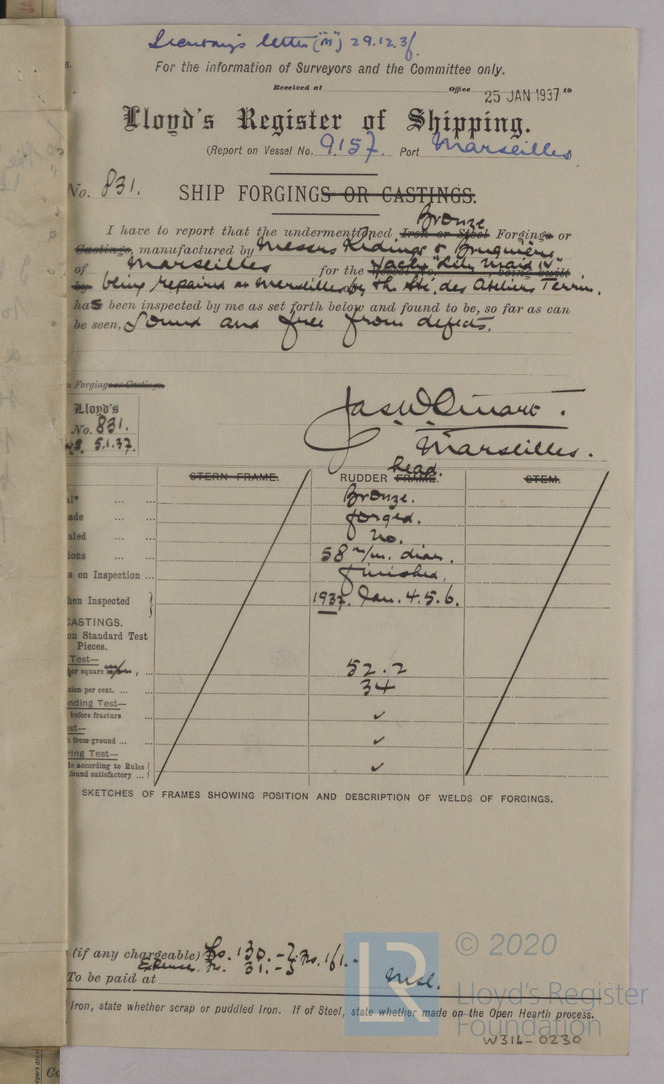 Secretary's letter ("M") 29.12.36.
For the information of Surveyors and the Committee only.
Received at Office 25 JAN 1937 19
Lloyd's Register of Shipping.
(Report on Vessel No. 9157. Port Marseilles
No. 831. SHIP FORGINGS OR CASTINGS.
Bronze
I have to report that the undermentioned Iron or Steel Forgings or
Castings, manufactured by Messrs Ridings & Bruguière
of Marseilles for the Yacht "Lily Maid IV"
being repaired at Marseilles by the Sté. des Ateliers Terrin.
has been inspected by me as set forth below and found to be, so far as can
be seen, Sound and free from defects.
Forging or Castings.
Lloyd's
No. 831.
5.1.37.
Marseilles.
head.
STERN FRAME. RUDDER FRAME. STEM.
Bronze.
forged.
no.
58 m/m. diam.
s on Inspection ... finished.
hen Inspected 1937. Jan. 4. 5. 6.
CASTINGS.
on Standard Test
Pieces.
Test—
per square m/m, ... 52.2
sion per cent. ... 34
nding Test—
before fracture ... ✓
est—
from ground ... ✓
ring Test—
le according to Rules
found satisfactory ... ✓
SKETCHES OF FRAMES SHOWING POSITION AND DESCRIPTION OF WELDS OF FORGINGS.
(if any chargeable) Fs. 130.-
Fs. 31.-
To be paid at Msl.
Iron, state whether scrap or puddled Iron. If of Steel, state whether made on the Open Hearth process.
© 2020
LR
Lloyd's Register
Foundation
W316-0230